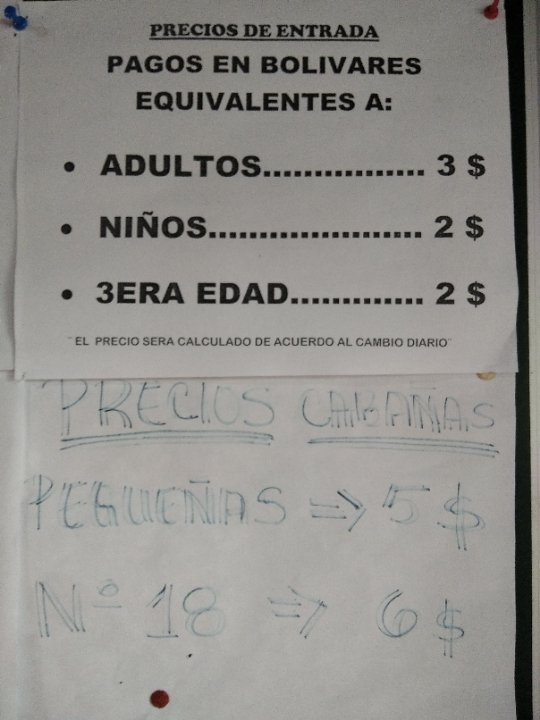 PRECIOS DE ENTRADA
PAGOS EN BOLIVARES
EQUIVALENTES A:
• ADULTOS................ 3 $
• NIÑOS..................... 2 $
• 3ERA EDAD............. 2 $
¨EL PRECIO SERA CALCULADO DE ACUERDO AL CAMBIO DIARIO¨
PRECIOS CABAÑAS
PEGUEÑAS ⇒ 5 $
Nº 18 ⇒ 6 $